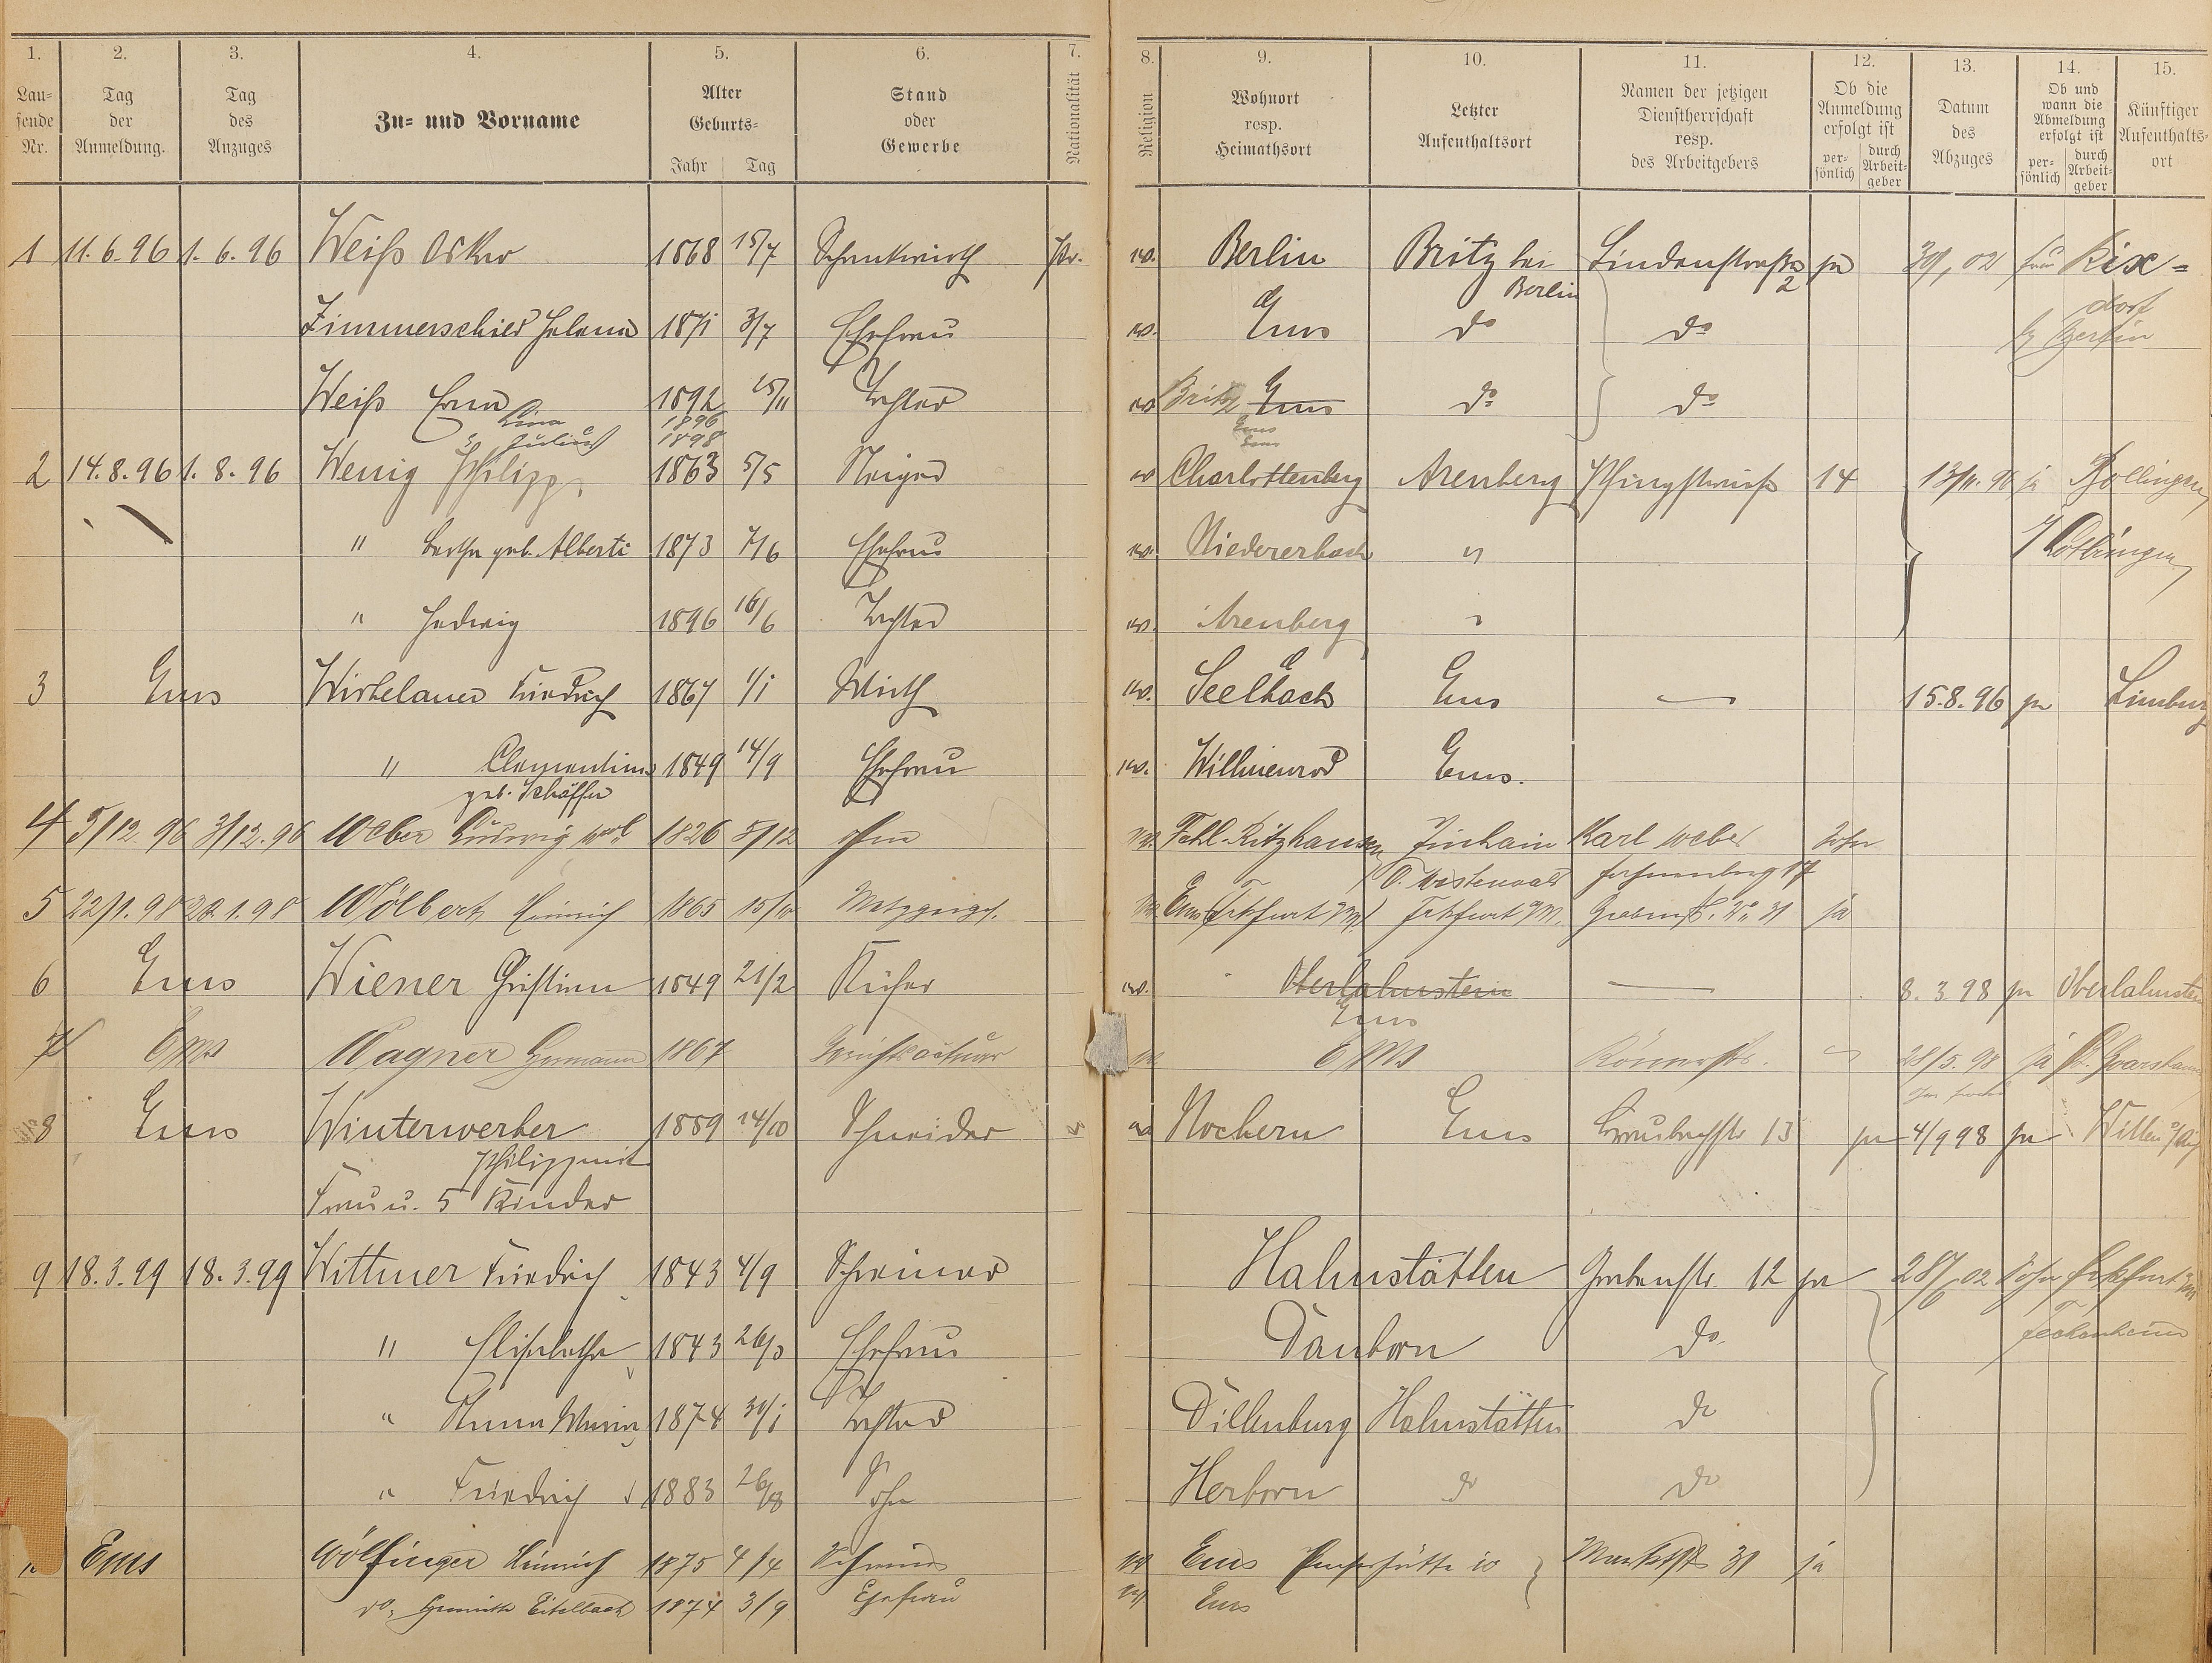 1. 2. 3. 4. 5. 6. 7. 8. 9. 10. 11. 12. 13. 14. 15.
Lau-
fende
Nr.
Tag
der
Anmeldung.
Tag
des
Anzuges
Zu- und Vorname
Alter
Geburts-
Jahr Tag
Stand
oder
Gewerbe
Nationalität
Religion
Wohnort
resp.
Heimathsort
Letzter
Aufenthaltsort
Namen der jetzigen
Dienstherrschaft
resp.
des Arbeitgebers
Ob die
Anmeldung
erfolgt ist
per-
sönlich
durch
Arbeit-
geber
Datum
des
Abzuges
Ob und
wann die
Abmeldung
erfolgt ist
per-
sönlich
durch
Arbeit-
geber
Künftiger
Aufenthalts-
ort
1 11.6.96 1.6.96 Weiß Oskar 1868 15/7 Schankwirth Pr. ev. Berlin Britz bei Lindenstraße ja Rix=
Berlin 2 dorf
Zimmerschied Helena 1871 3/7 Ehefrau ev. Ems do do Berlin
Weiß Erna 1892 Tochter ev Britz Ems do do
Lina 1896 Ems
Julius 1898 Ems
2 14.8.96 1.8.96 Wenig Philipp 1863 5/5 Steiger ev Charlottenberg Arenberg Pfingstwiese 14 ja Bollingen
" Bertha geb. Alberti 1873 Ehefrau ev. Niedererbach " Lothringen
" Hedwig 1896 16/6 Tochter ev. Arenberg "
3 Ems Friedrich 1867 1/1 Wirth ev. Seelbach Ems — 15.8.96 ja Limburg
" Clementine 1849 14/9 Ehefrau ev. Willmenrod Ems.
geb. Schäffer
4 3/12.96 3/12.96 Weber Ludwig 1826 5/12 ohne ev. Fehl-Ritzhausen Zinhain Karl Weber Sohn
O. Westerwald
5 22/1.98 22.1.98 Wölbert Heinrich 1865 15/10 Metzgergeh. Ems Frkfurt a/M Frkfurt a/M. Grabenstr. No. 31 ja
6 Ems Wiener Christian 1849 21/2 Küfer ev. Oberlahnstein — 8.3.98 ja Oberlahnstein
Ems
7 Ems Wagner Hermann 1867 Gerichtsactuar Ems Römerstr. 28/5.98 ja St. Goarshausen
8 Ems Winterwerber 1859 24/10 Schneider ev Nochern Ems 13 ja 4/9 98 ja Witten
Philipp mit
Frau u. 5 Kinder
9 18.3.99 18.3.99 Wittmer Friedrich 1843 4/9 Schreiner Hahnstätten Grabenstr. 12 ja 02 Sohn Frkfurt
" Elisabetha 1843 Ehefrau Dauborn do Fechenheim
" Anna Maria 1874 Tochter Dillenburg Hahnstätten do
" Friedrich 1883 Sohn Herborn do do
Ems Wölfinger Heinrich 1875 4/4 Schreiner ev Ems 10 Marktstr 31 ja
do. Eitelbach 1874 3/9 Ehefrau ev Ems